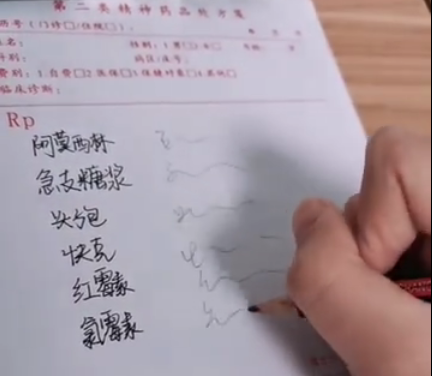 第二类精神药品处方笺
历号(门诊□/住院□):
年 月 日
姓名: 性别:1男□2女□ 年龄:
科别: 病区/床号:
费别:1自费□2医保□3保健对象□4其他□
临床诊断:
Rp
阿莫西林
急支糖浆
头孢
快克
红霉素
氯霉素